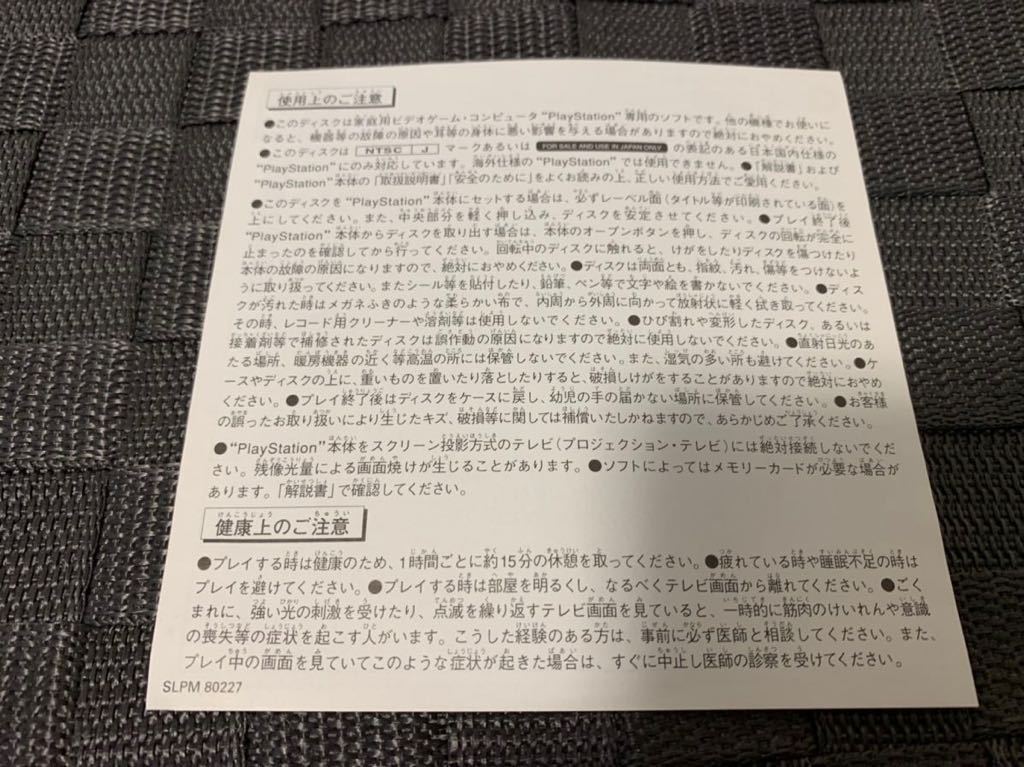 使用上のご注意
●このディスクは家庭用ビデオゲーム・コンピュータ"PlayStation"専用のソフトです。他の機種でお使いに
なると、機器等の故障の原因や耳等の身体に悪い影響を与える場合がありますので絶対におやめください。
●このディスクは NTSC J マークあるいは FOR SALE AND USE IN JAPAN ONLY の表記のある日本国内仕様の
"PlayStation"にのみ対応しています。海外仕様の"PlayStation"では使用できません。●「解説書」および
"PlayStation"本体の「取扱説明書」「安全のために」をよくお読みの上、正しい使用方法でご愛用ください。
●このディスクを"PlayStation"本体にセットする場合は、必ずレーベル面(タイトル等が印刷されている面)を
上にしてください。また、中央部分を軽く押し込み、ディスクを安定させてください。●プレイ終了後
"PlayStation"本体からディスクを取り出す場合は、本体のオープンボタンを押し、ディスクの回転が完全に
止まったのを確認してから行ってください。回転中のディスクに触れると、けがをしたりディスクを傷つけたり
本体の故障の原因になりますので、絶対におやめください。●ディスクは両面とも、指紋、汚れ、傷等をつけないよ
うに取り扱ってください。またシール等を貼付したり、鉛筆、ペン等で文字や絵を書かないでください。●ディス
クが汚れた時はメガネふきのような柔らかい布で、内周から外周に向かって放射状に軽く拭き取ってください。
その時、レコード用クリーナーや溶剤等は使用しないでください。●ひび割れや変形したディスク、あるいは
接着剤等で補修されたディスクは誤作動の原因になりますので絶対に使用しないでください。●直射日光のあ
たる場所、暖房機器の近く等高温の所には保管しないでください。また、湿気の多い所も避けてください。●ケ
ースやディスクの上に、重いものを置いたり落としたりすると、破損しけがをすることがありますので絶対におやめ
ください。●プレイ終了後はディスクをケースに戻し、幼児の手の届かない場所に保管してください。●お客様
の誤ったお取り扱いにより生じたキズ、破損等に関しては補償いたしかねますので、あらかじめご了承ください。
●"PlayStation"本体をスクリーン投影方式のテレビ(プロジェクション・テレビ)には絶対接続しないでくだ
さい。残像光量による画面焼けが生じることがあります。●ソフトによってはメモリーカードが必要な場合が
あります。「解説書」で確認してください。
健康上のご注意
●プレイする時は健康のため、1時間ごとに約15分の休憩を取ってください。●疲れている時や睡眠不足の時は
プレイを避けてください。●プレイする時は部屋を明るくし、なるべくテレビ画面から離れてください。●ごく
まれに、強い光の刺激を受けたり、点滅を繰り返すテレビ画面を見ていると、一時的に筋肉のけいれんや意識
の喪失等の症状を起こす人がいます。こうした経験のある方は、事前に必ず医師と相談してください。また、
プレイ中の画面を見ていてこのような症状が起きた場合は、すぐに中止し医師の診察を受けてください。
SLPM 80227